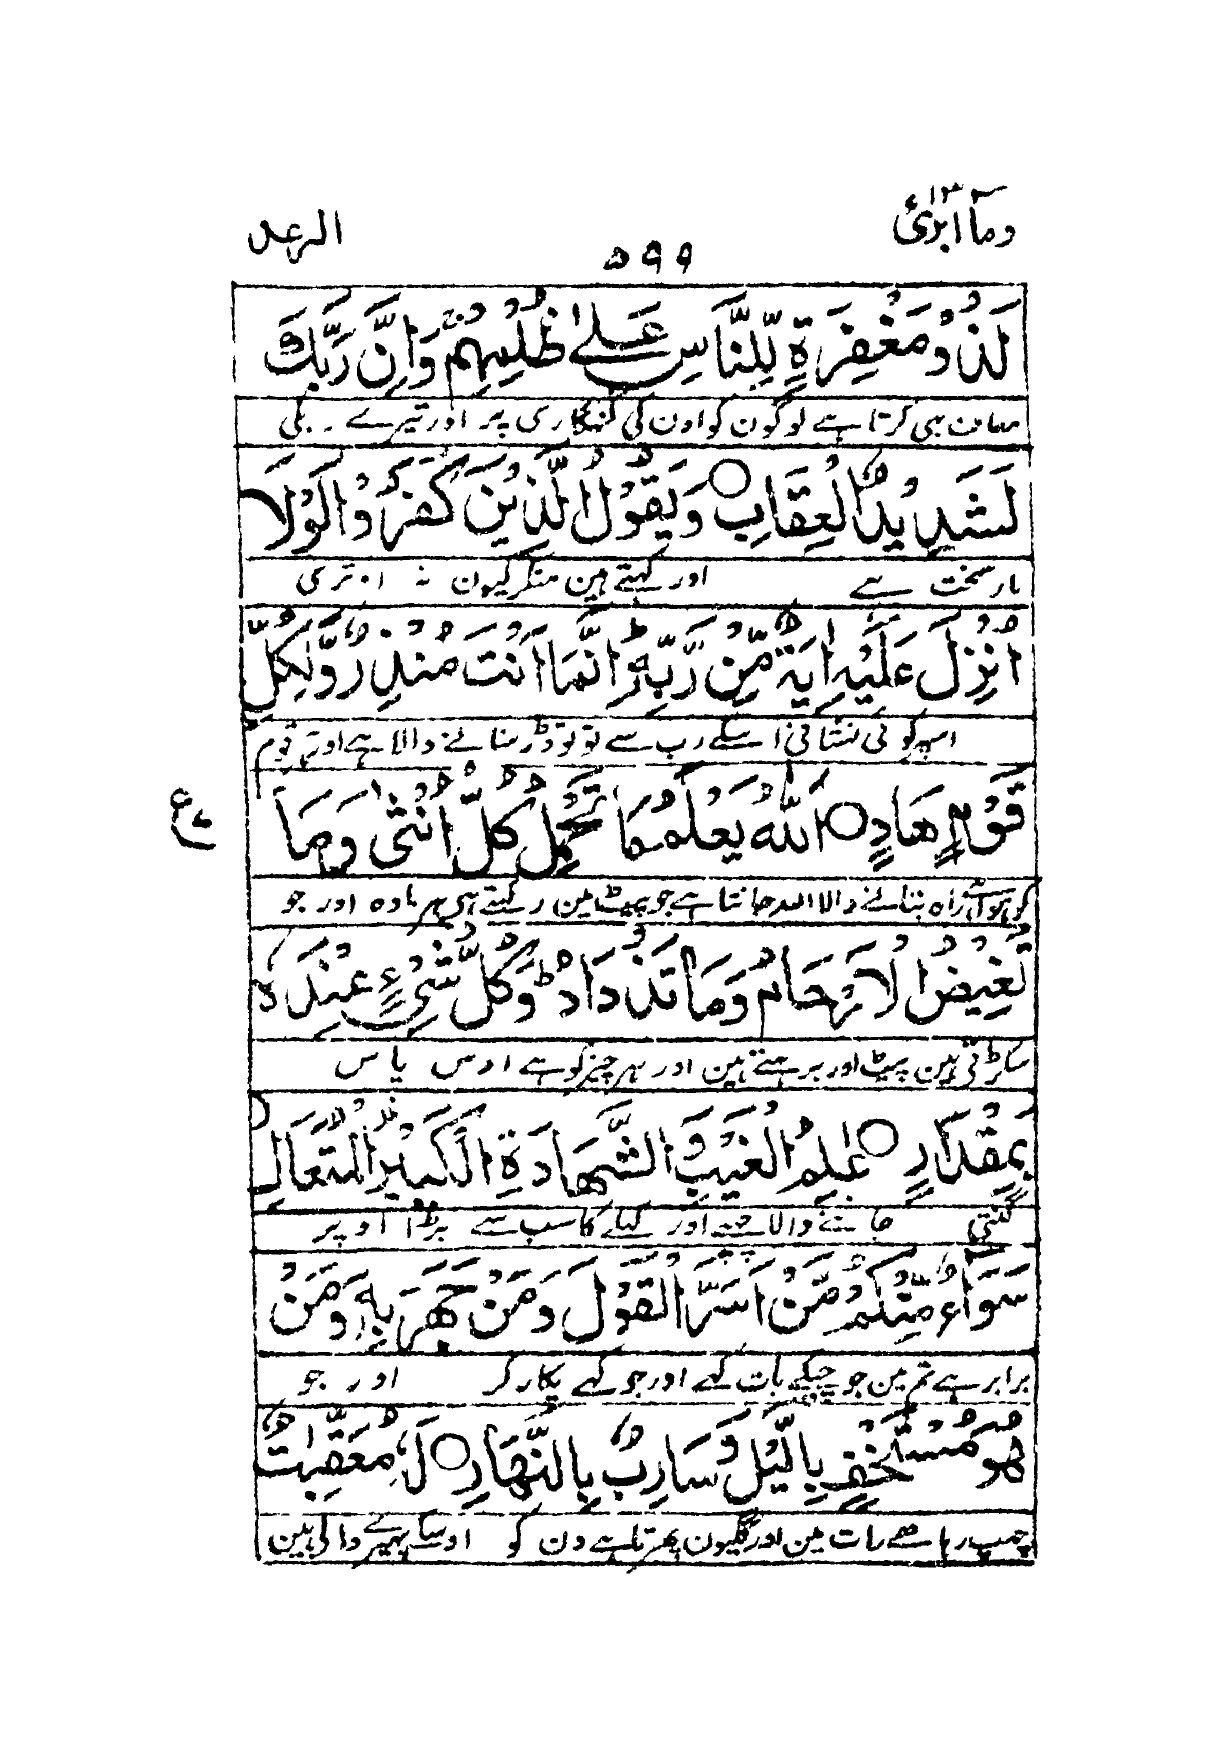 وما ابرئ ١٣
الرعد
٥٩٩
لَذُوْ مَغْفِرَةٍ لِّلنَّاسِ عَلٰى ظُلْمِهِمْ ۚ وَاِنَّ رَبَّكَ
معاف بھی کرتا ہے لوگون کو اون کی گنہگاری پر اور تیرے رب کی
لَشَدِيْدُ الْعِقَابِ ○ وَيَقُوْلُ الَّذِيْنَ كَفَرُوْا لَوْلَآ
مار سخت ہے اور کہتے ہین منکر کیون نہ اوتری
اُنْزِلَ عَلَيْهِ اٰيَةٌ مِّنْ رَّبِّهٖ ؕ اِنَّمَآ اَنْتَ مُنْذِرٌ وَّلِكُلِّ
اسپر کوئی نشانی اسکے رب سے تو تو ڈر سنانے والا ہے اور ہر قوم
قَوْمٍ هَادٍ ○ اَللّٰهُ يَعْلَمُ مَا تَحْمِلُ كُلُّ اُنْثٰى وَمَا
ع ٧
کو ہوا ہے راہ بتانے والا اللہ جانتا ہے جو پیٹ مین رکھتی ہی ہر مادہ اور جو
تَغِيْضُ الْاَرْحَامُ وَمَا تَزْدَادُ ؕ وَكُلُّ شَيْءٍ عِنْدَهٗ
سکڑتی ہین پیٹ اور بڑہتے ہین اور ہر چیز کو ہے اوس پاس
بِمِقْدَارٍ ○ عٰلِمُ الْغَيْبِ وَالشَّهَادَةِ الْكَبِيْرُ الْمُتَعَالِ
گنتی جاننے والا چھپے اور کھلے کا سب سے بڑا اوپر
سَوَآءٌ مِّنْكُمْ مَّنْ اَسَرَّ الْقَوْلَ وَمَنْ جَهَرَ بِهٖ وَمَنْ
برابر ہے تم مین جو چپکے بات کہے اور جو کہے پکار کر اور جو
هُوَ مُسْتَخْفٍۢ بِالَّيْلِ وَسَارِبٌۢ بِالنَّهَارِ ○ لَهٗ مُعَقِّبٰتٌ
چھپ رہا ہے رات مین اور گلیون پھرتا ہے دن کو اوسکے پہرے والی ہین